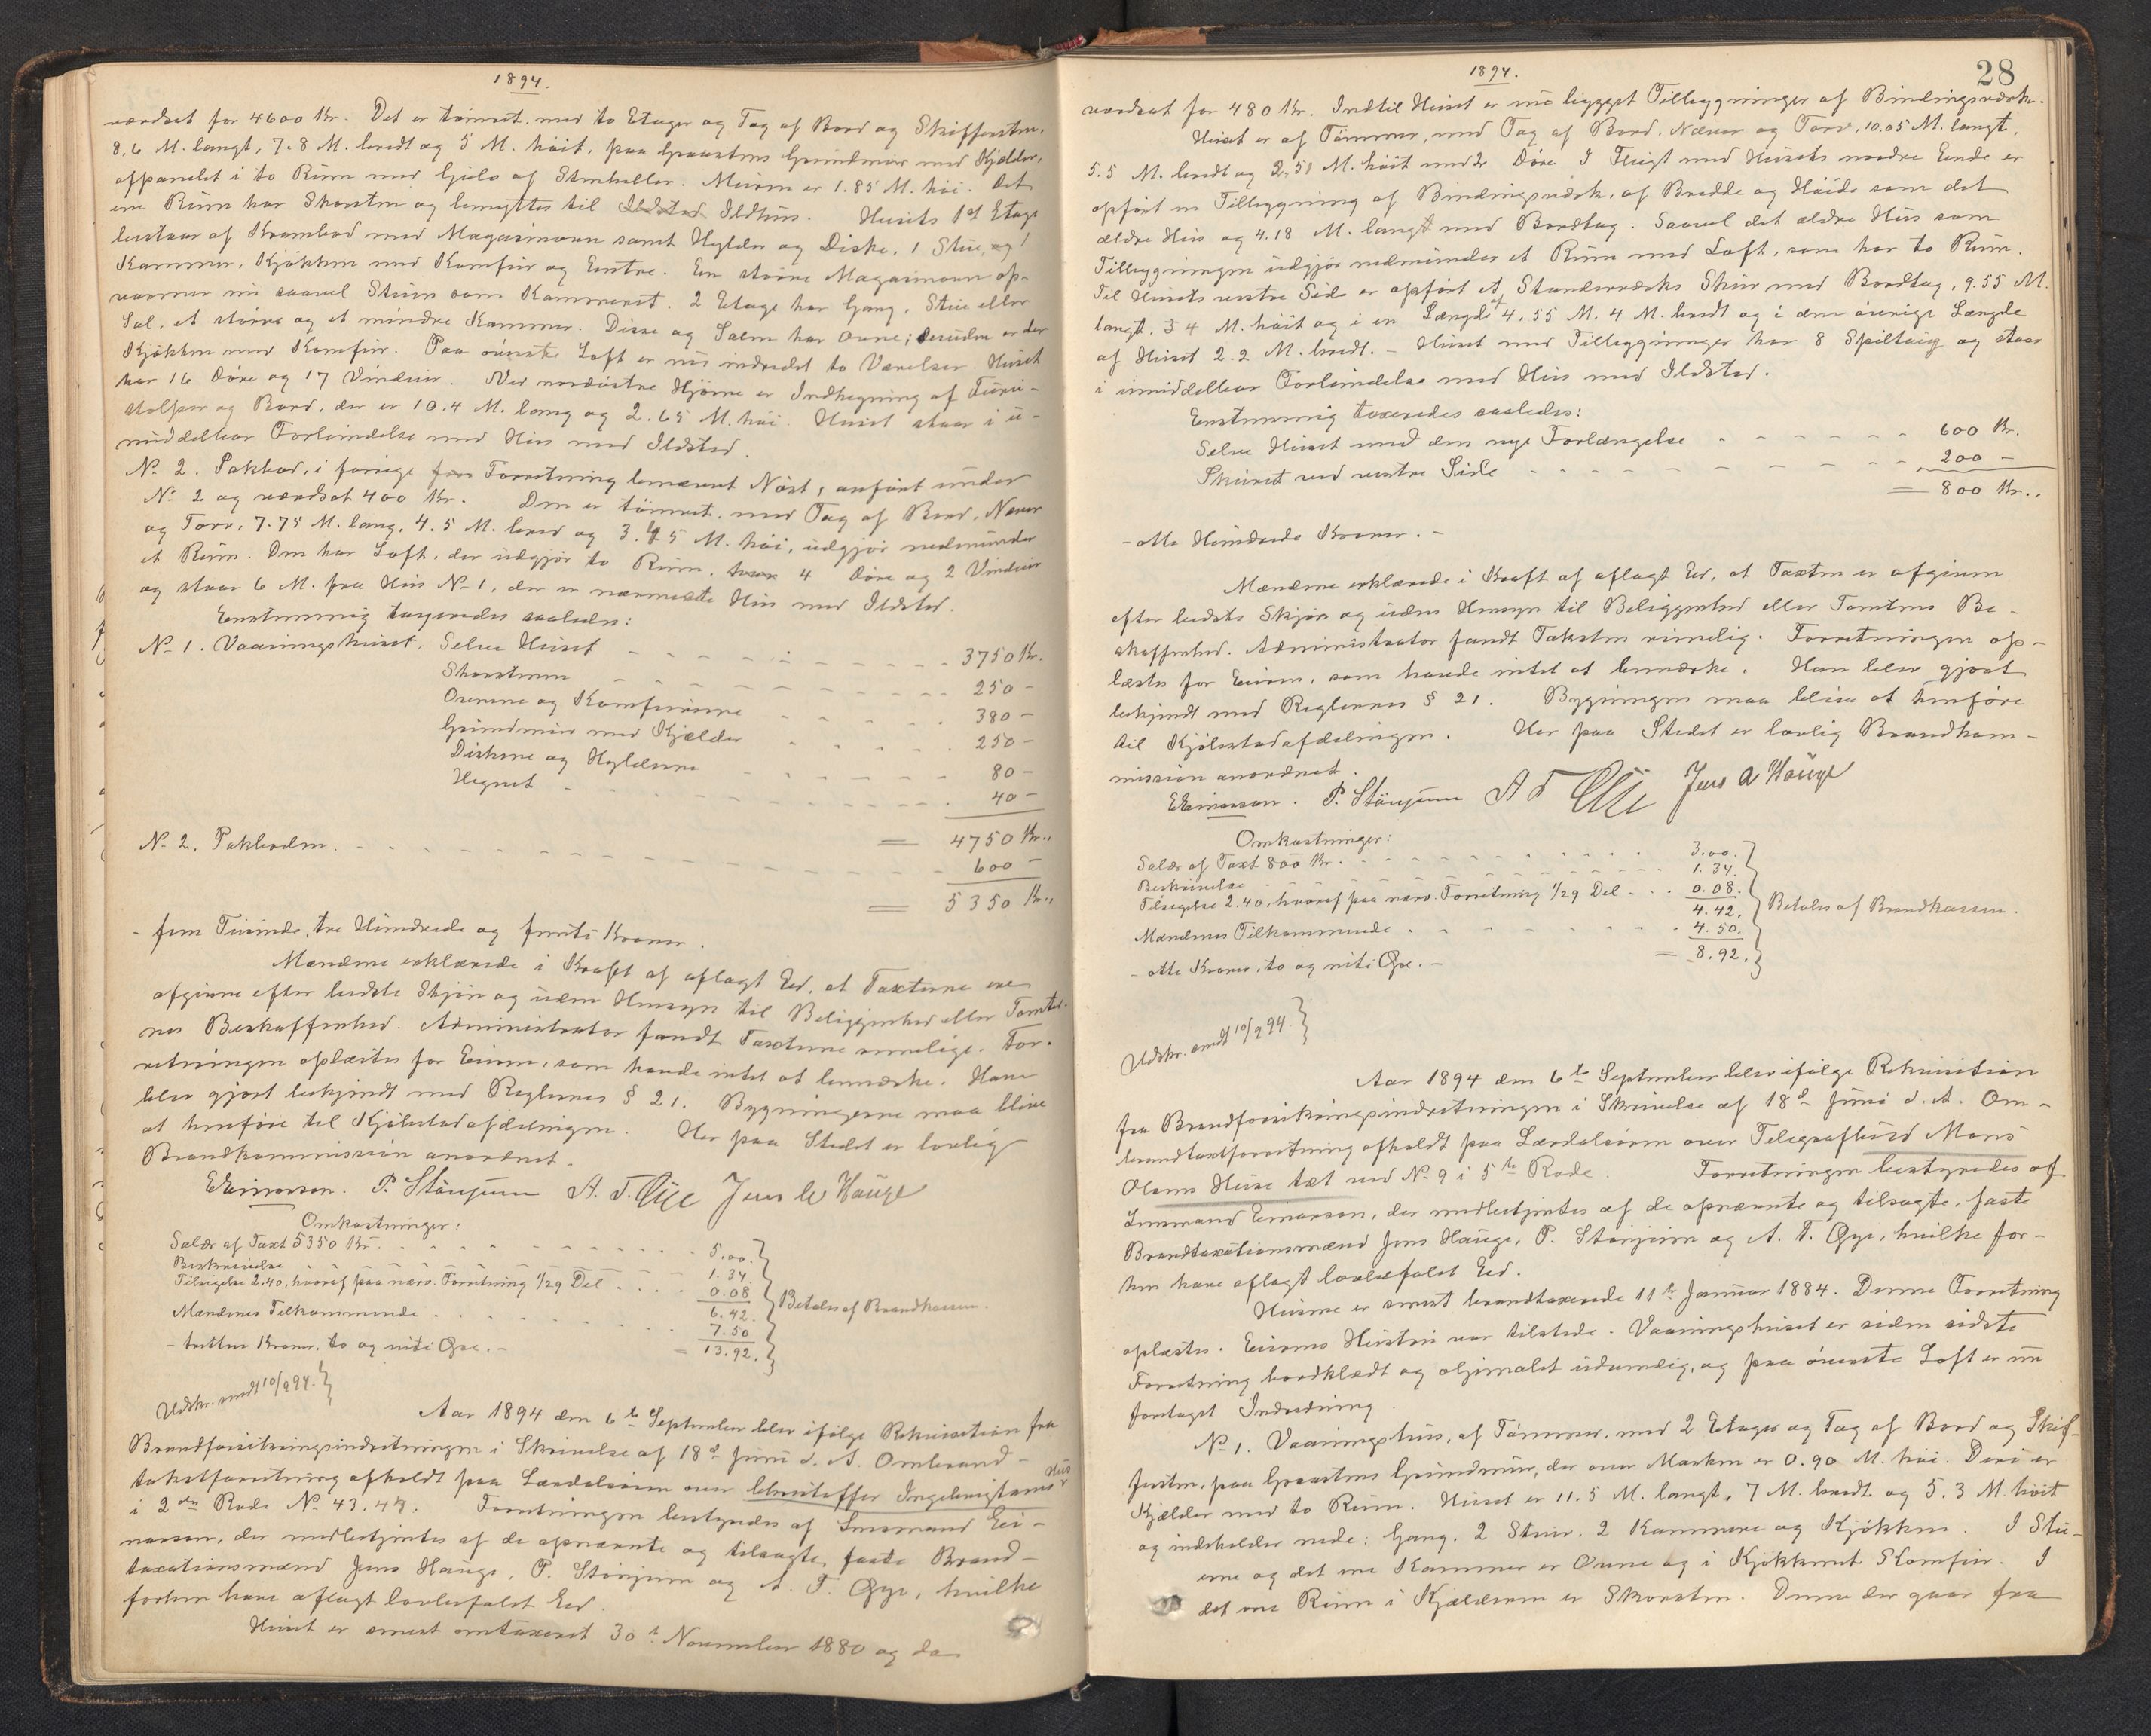 1894.
værdsat for 4600 Kr. Det er tømret, med to Etager og Tag af Bord og Skiffersten,
8.6 M. langt, 7.8 M. bredt og 5 M. høit, paa Graastens Grundmur med Kjelder,
afpanelet i to Rum med Gulv af Stenheller. Muren er 1.85 M. høi. Det
ene Rum har Skorsten og benyttes til Ildsted Ildhus. Husets 1st Etage
bestaar af Krambod med Magasinovn samt Hylder og Diske, 1 Stue, og 1
Kammer, Kjøkken med Komfur og Entre. En større Magasinovn op-
varmer nu saavel Stuen som Kammeret. 2 Etage har Gang, Stue eller
Sal, et større og et mindre Kammer. Disse og Salen har Ovne; desuden er der
Kjøkken med Komfur. Paa øverste Loft er nu indredet to Værelser. Huset
har 16 Døre og 17 Vinduer. Ved nordøstre Hjørne er Indhegning af Furu-
stolper og Bord, der er 10.4 M. lang og 2.65 M. høi. Huset staar i u-
middelbar Forbindelse med Hus med Ildsted.
No 2. Pakbod, i forrige Forretning benævnt Nøst, anført under
No 2 og værdsat 400 Kr. Den er tømret, med Tag af Bord, Næver
og Torv, 7.75 M. lang, 4.5 M. bred og 3.45 M. høi, udgjør nedenunder
et Rum. Den har Loft, der udgjør to Rum, 4 Døre og 2 Vinduer
og staar 6 M. fra Hus No 1, der er nærmeste Hus med Ildsted.
Enstemmig taxeredes saaledes:
No 1. Vaaningshuset. Selve Huset - - - - - - - - 3750 Kr.
Skorstenen - - - - - - - - 250 -
Ovnene og Komfurerne - - - - - 380 -
Grundmur med Kjælder - - - - - 250 -
Diskene og Hylderne - - - - - 80 -
Hegnet - - - - - - - - 40 -
= 4750 Kr.,
No 2. Pakboden. - - - - - - - - 600 -
= 5350 Kr.,
- fem Tusinde, tre Hundrede og femti Kroner.
Mændene erklærede i Kraft af aflagt Eed, at Taxterne ere
afgivne efter bedste Skjøn og uden Hensyn til Beliggenhed eller Tomter-
nes Beskaffenhed. Administrator fandt Taxterne rimelige. For-
retningen oplæstes for Eieren, som havde intet at bemærke. Han
blev gjort bekjendt med Reglernes § 21. Bygningerne maa blive
at henføre til Kjøbstadafdelingen. Her paa Stedet er lovlig
Brandkommission anordnet.
EEinarson. P. Stönjum A. T. Øye Jens A Hauge
Omkostninger:
Salær af Taxt 5350 Kr. - - - - - 5.00.
Beskrivelse - - - - - 1.34.
Tilsigelse 2.40, hvoraf paa nærv. Forretning 1/29 Del - - - 0.08
6.42. Betales af Brandkassen.
Mændenes Tilkommende - - - - - 7.50
- tretten Kroner, to og niti Øre. - = 13.92.
Udskr. sendt 10/9 94.
Aar 1894 den 6te September blev ifølge Rekvisition fra
Brandforsikringsindretningen i Skrivelse af 18d Juni d. A. Ombrand-
takstforretning afholdt paa Lærdalsøren over Christoffer Ingebrigtsens Hus
i 2den Rode No 43.44. Forretningen bestyredes af Lensmand Ei-
narson, der medbetjentes af de opnævnte og tilsagte, faste Brand-
taxationsmænd Jens Hauge, P. Stönjum og A. T. Øye, hvilke
forhen have aflagt lovbefalet Eed.
Huset er senest omtaxeret 30te November 1880 og da
1894.
28
værdsat for 480 Kr. Indtil Huset er nu bygget Tilbygninger af Bindingsværk.
Huset er af Tømmer, med Tag af Bord, Næver og Torv, 10.05 M. langt,
5.5 M. bredt og 2.51 M. høit med 2 Døre. I Flugt med Husets nordre Ende er
opført en Tilbygning af Bindingsværk, af Bredde og Høide som det
ældre Hus og 4.18 M. langt med Bordtag. Saavel det ældre Hus som
Tilbygningen udgjør nedenunder et Rum med Loft, som har to Rum.
Til Husets vestre Side er opført et Standerværks Skur med Bordtag, 9.55 M.
langt, 3 4 M. høit og i en Længde af 4.55 M. 4 M. bredt og i den øvrige Længde
af Huset 2.2 M. bredt. - Huset med Tilbygninger har 8 Spiltaug og staar
i umiddelbar Forbindelse med Hus med Ildsted.
Enstemmig taxeredes saaledes:
Selve Huset med den nye Forlængelse - - - - - - - 600 Kr.
Skuret ved vestre Side - - - - - - - - 200 -
= 800 Kr.,
- otte Hundrede Kroner. -
Mændene erklærede i Kraft af aflagt Eed, at Taxten er afgiven
efter bedste Skjøn og uden Hensyn til Beliggenhed eller Tomtens Be-
skaffenhed. Administrator fandt Taksten rimelig. Forretningen op-
læstes for Eieren, som havde intet at bemærke. Han blev gjort
bekjendt med Reglernes § 21. Bygningen maa blive at henføre
til Kjøbstadafdelingen. Her paa Stedet er lovlig Brandkom-
mission anordnet.
EEinarson. P. Stönjum A T Øye Jens A Hauge
Omkostninger:
Salær af Taxt 800 Kr. - - - - - 3.00.
Beskrivelse - - - - - 1.34.
Tilsigelse 2.40, hvoraf paa nærv. Forretning 1/29 Del - - - 0.08.
4.42. Betales af Brandkassen.
Mændenes Tilkommende - - - - - 4.50.
- otte Kroner, to og niti Øre. - = 8.92.
Udskr. sendt 10/9 94.
Aar 1894 den 6te September blev ifølge Rekvisition
fra Brandforsikringsindretningen i Skrivelse af 18d Juni d. A. Om-
brandtaxtforretning afholdt paa Lærdalsøren over Telegrafbud Mons
Olsens Huse tæt ved No 9 i 5te Rode. Forretningen bestyredes af
Lensmand Einarson, der medbetjentes af de opnævnte og tilsagte, faste
Brandtaxationsmænd Jens Hauge, P. Stönjum og A. T. Øye, hvilke for-
hen have aflagt lovbefalet Eed.
Husene er senest brandtaxerede 11te Januar 1884. Denne Forretning
oplæstes. Eierens Hustru var tilstede. Vaaningshuset er siden sidste
Forretning bordklædt og oljemalet udvendig, og paa øverste Loft er nu
foretaget Indredning.
No 1. Vaaningshus, af Tømmer, med 2 Etager og Tag af Bord og Skif-
fersten, paa Graastens Grundmur, der over Marken er 0.90 M. høi. Deri er
Kjælder med to Rum. Huset er 11.5 M. langt, 7 M. bredt og 5.3 M. høit
og indeholder nede: Gang, 2 Stuer, 2 Kammere og Kjøkken. I Stu-
erne og det ene Kammer er Ovne og i Kjøkkenet Komfur. I
det ene Rum i Kjælderen er Skorsten. Denne der gaar fra